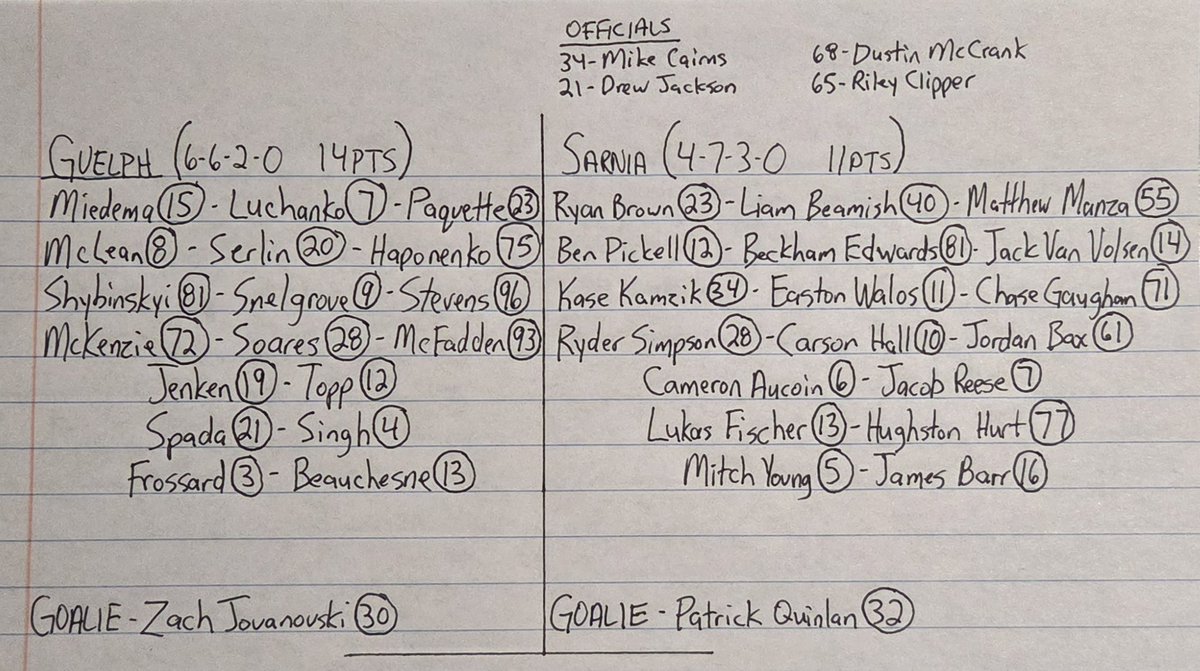 OFFICIALS
34-Mike Cairns 68-Dustin McCrank
21-Drew Jackson 65-Riley Clipper
GUELPH (6-6-2-0 14PTS)
Miedema 15 - Luchanko 7 - Paquette 23
McLean 8 - Serlin 20 - Haponenko 75
Shybinskyi 81 - Snelgrove 9 - Stevens 96
McKenzie 72 - Soares 28 - McFadden 93
Jenken 19 - Topp 12
Spada 21 - Singh 4
Frossard 3 - Beauchesne 13
GOALIE - Zach Jovanovski 30
SARNIA (4-7-3-0 11PTS)
Ryan Brown 23 - Liam Beamish 40 - Matthew Manza 55
Ben Pickell 12 - Beckham Edwards 81 - Jack Van Volsen 14
Kase Kamzik 34 - Easton Walos 11 - Chase Gaughan 71
Ryder Simpson 28 - Carson Hall 10 - Jordan Bax 61
Cameron Aucoin 6 - Jacob Reese 7
Lukas Fischer 13 - Hughston Hurt 77
Mitch Young 5 - James Barr 16
GOALIE - Patrick Quinlan 32